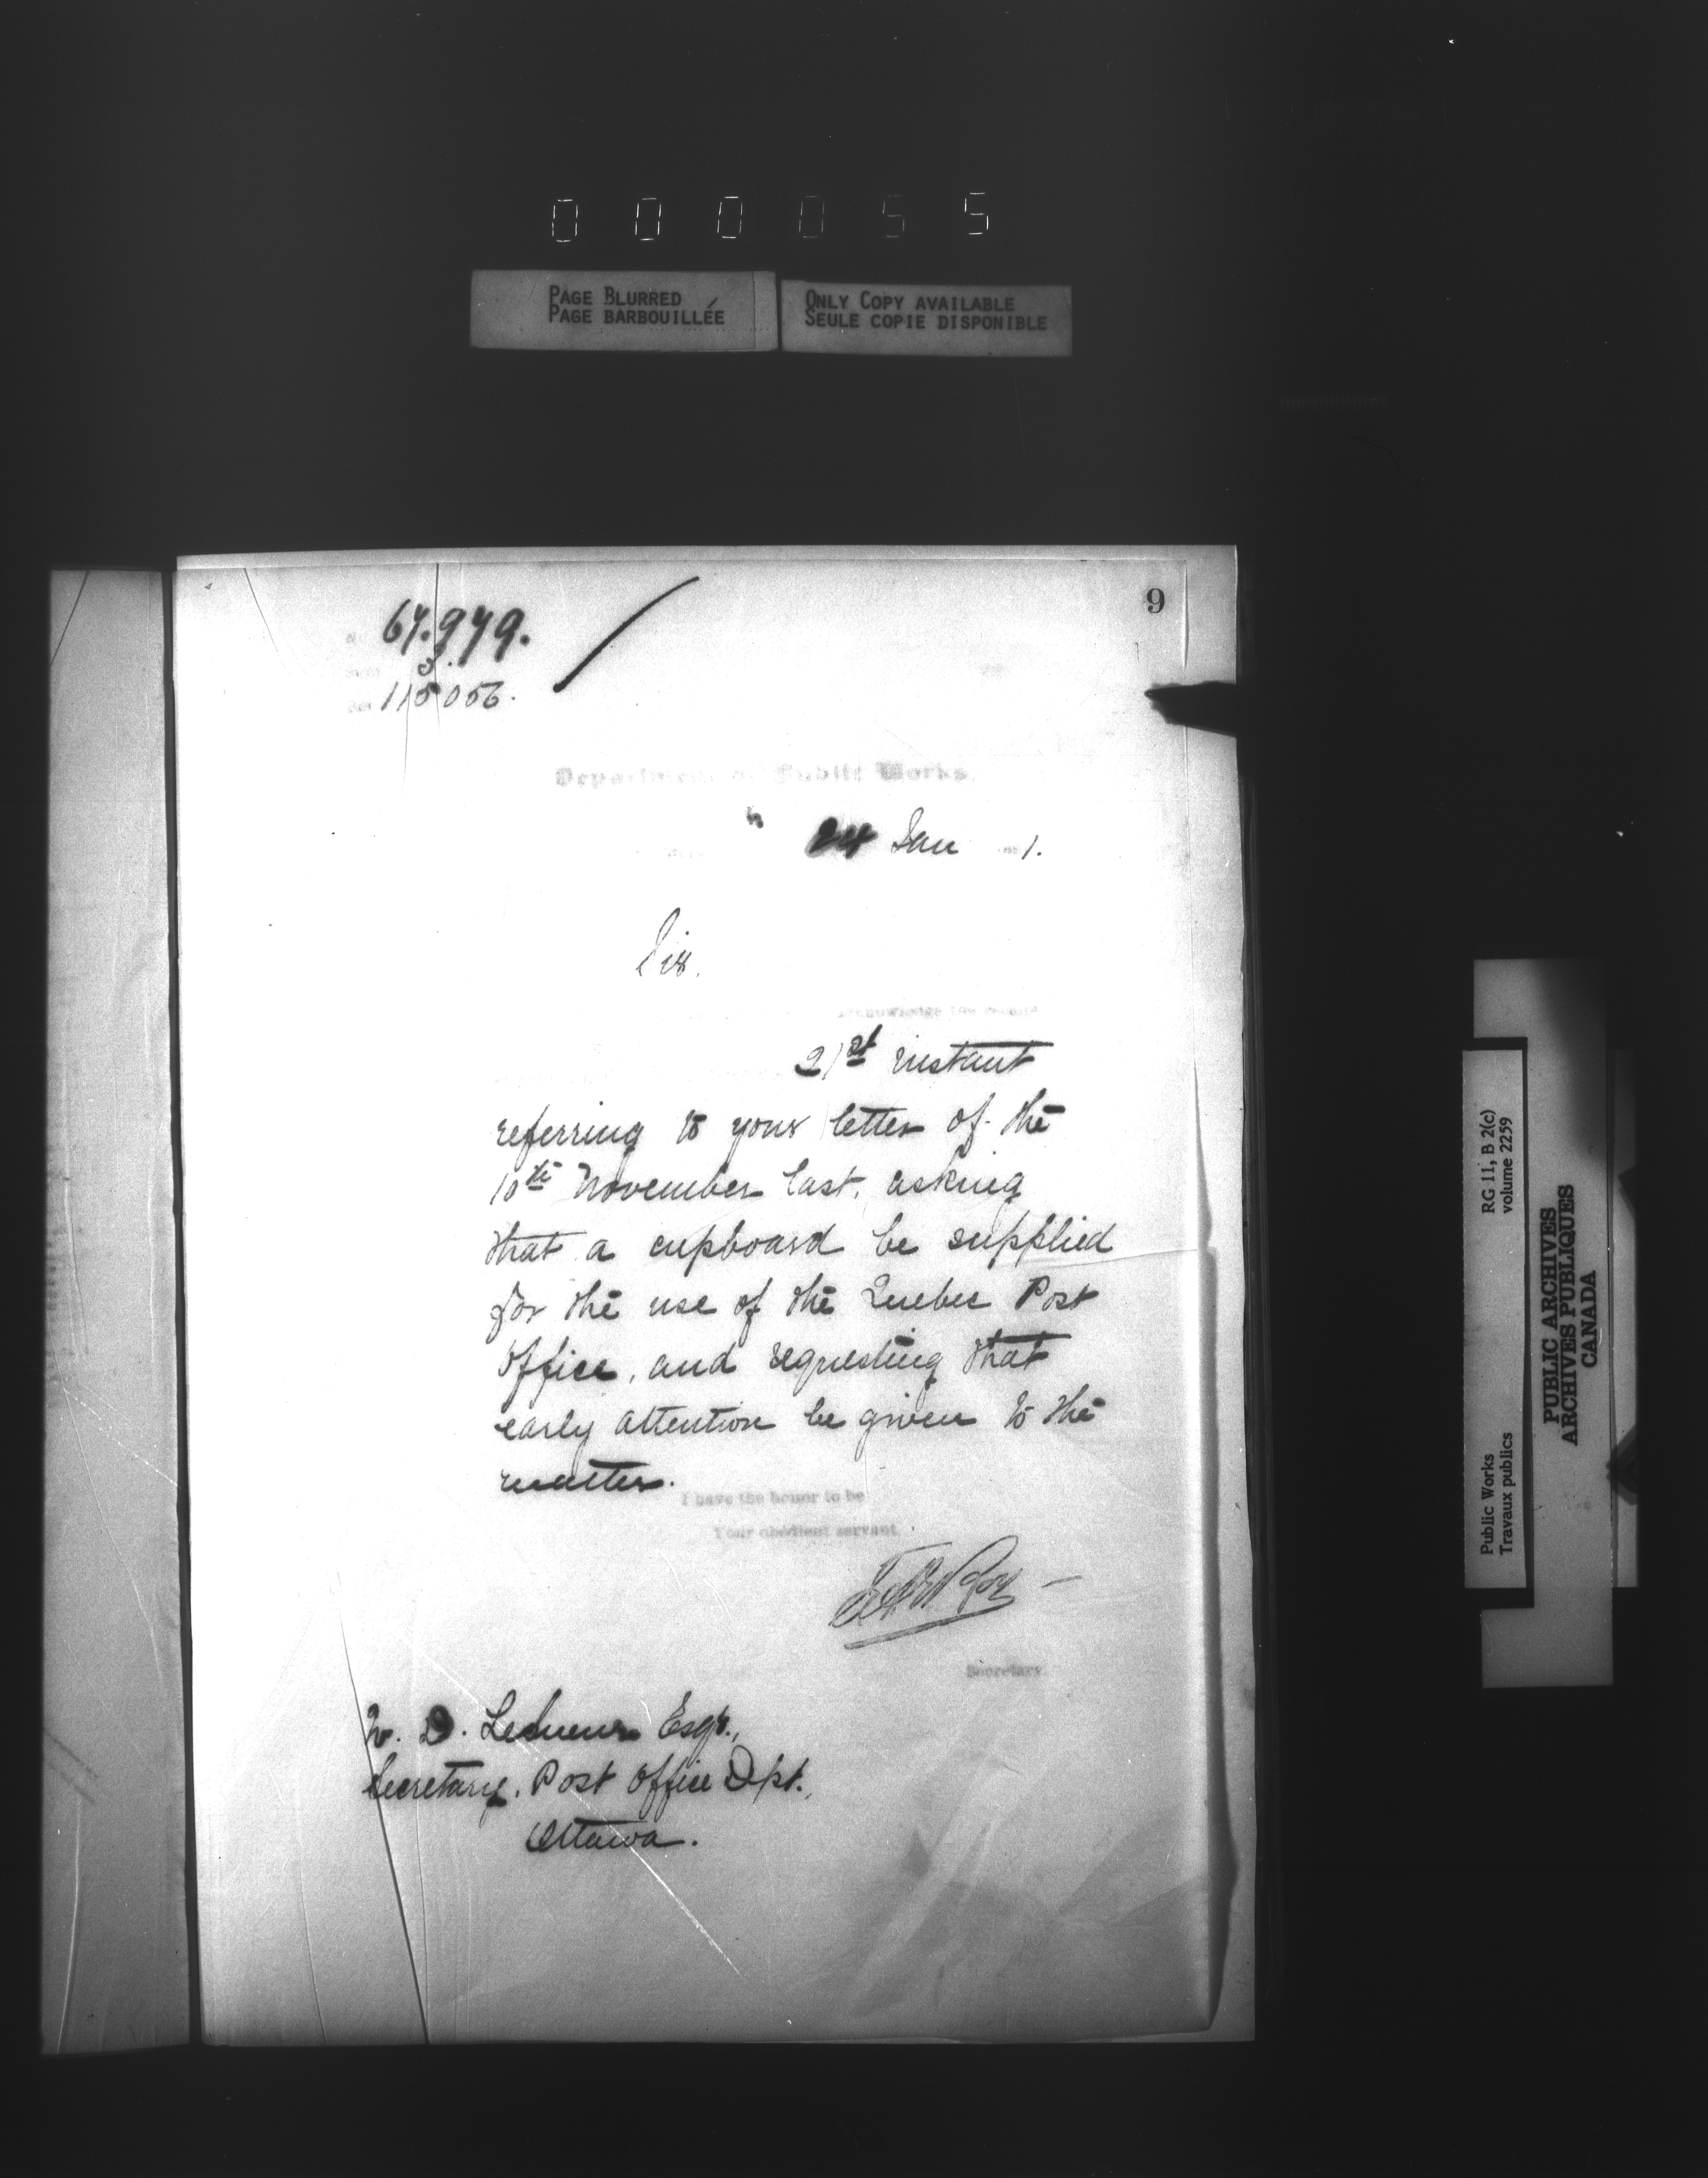 000055
PAGE BLURRED
PAGE BARBOUILLÉE
ONLY COPY AVAILABLE
SEULE COPIE DISPONIBLE
9
67.979.
115056.
Department of Public Works.
24 Jan 1.
Sir.
acknowledge the receipt
21st instant
referring to your letter of the
10th November last, asking
that a cupboard be supplied
for the use of the Quebec Post
Office, and requesting that
early attention be given to the
matter.
I have the honor to be
Your obedient servant,
Roy
Secretary
W. D. LeSueur Esqr.,
Secretary. Post Office Dpt.,
Ottawa.
RG 11, B 2(c)
volume 2259
Public Works
Travaux publics
PUBLIC ARCHIVES
ARCHIVES PUBLIQUES
CANADA